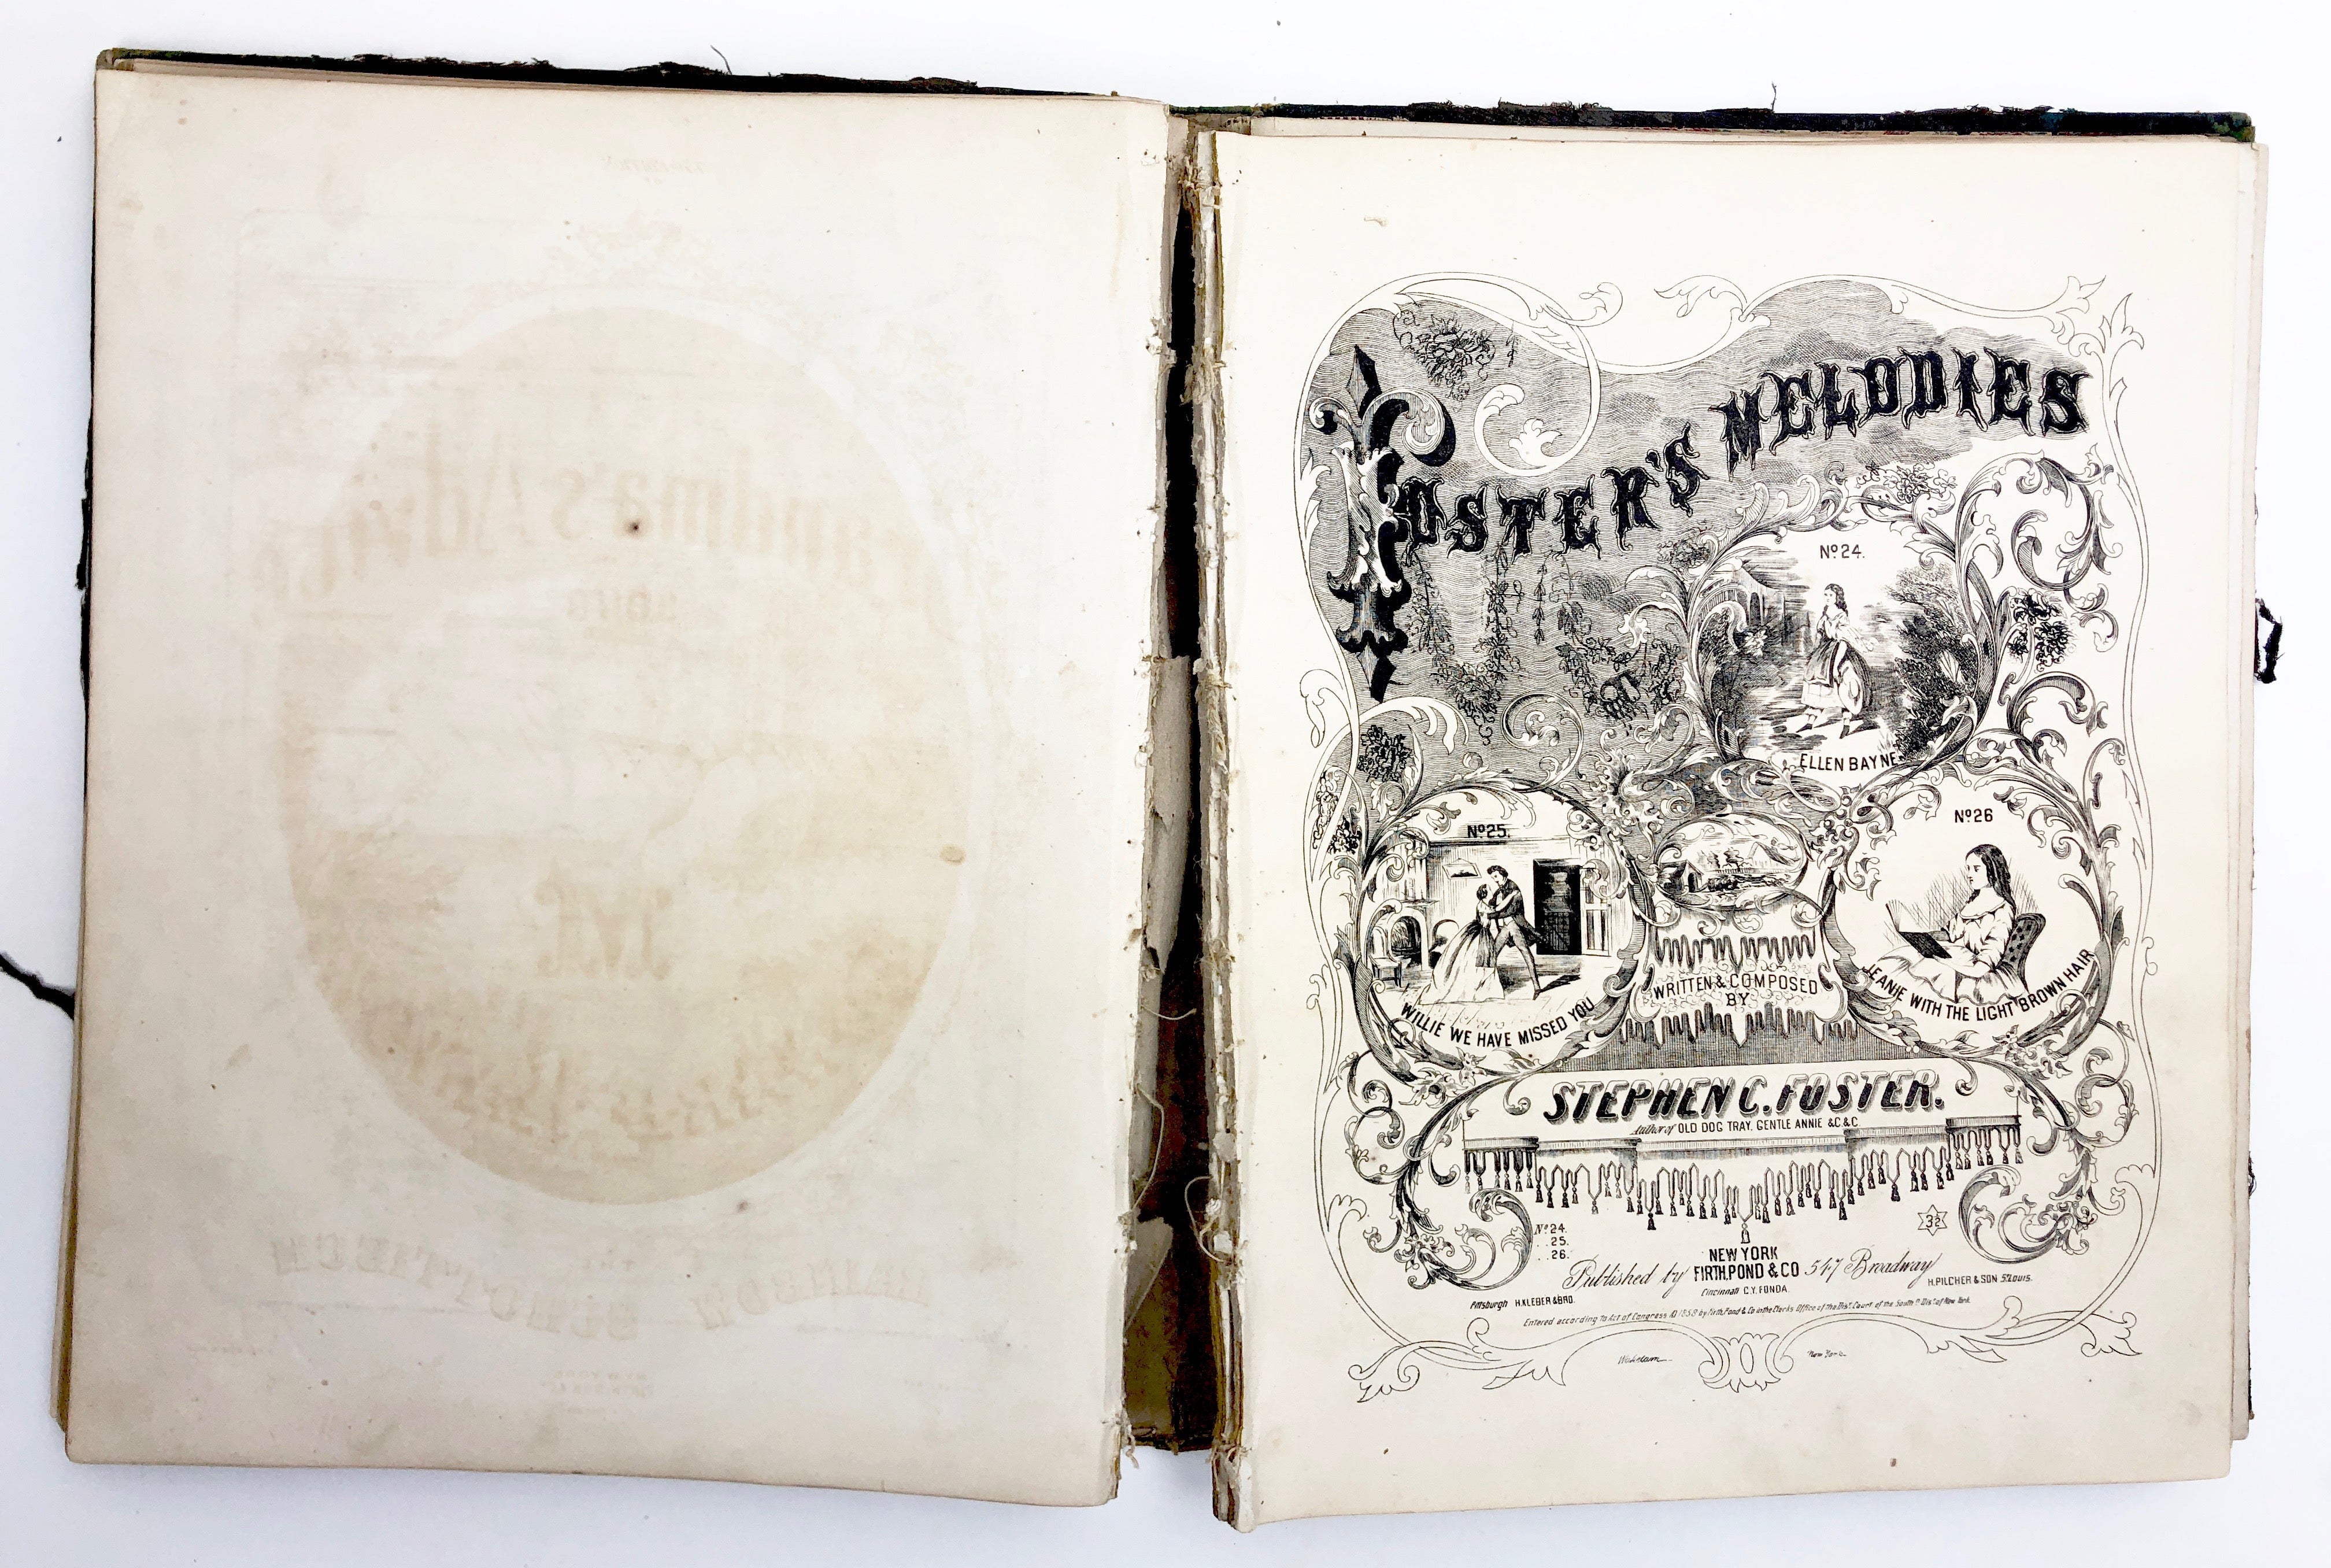 FOSTER'S MELODIES
Nº 24.
ELLEN BAYNE
Nº 25.
WILLIE WE HAVE MISSED YOU
Nº 26
JEANIE WITH THE LIGHT BROWN HAIR
WRITTEN & COMPOSED
BY
STEPHEN C. FOSTER.
Author of OLD DOG TRAY, GENTLE ANNIE &C &C
Nº 24.
25.
26.
3½
NEW YORK
Published by FIRTH, POND & CO 547 Broadway
Pittsburgh H. KLEBER & BRO. Cincinnati C. Y. FONDA. H. PILCHER & SON St LOUIS.
Entered according to Act of Congress AD 1858 by Firth, Pond & Co in the Clerks Office of the Dist. Court of the Southn Dist. of New York.
New York